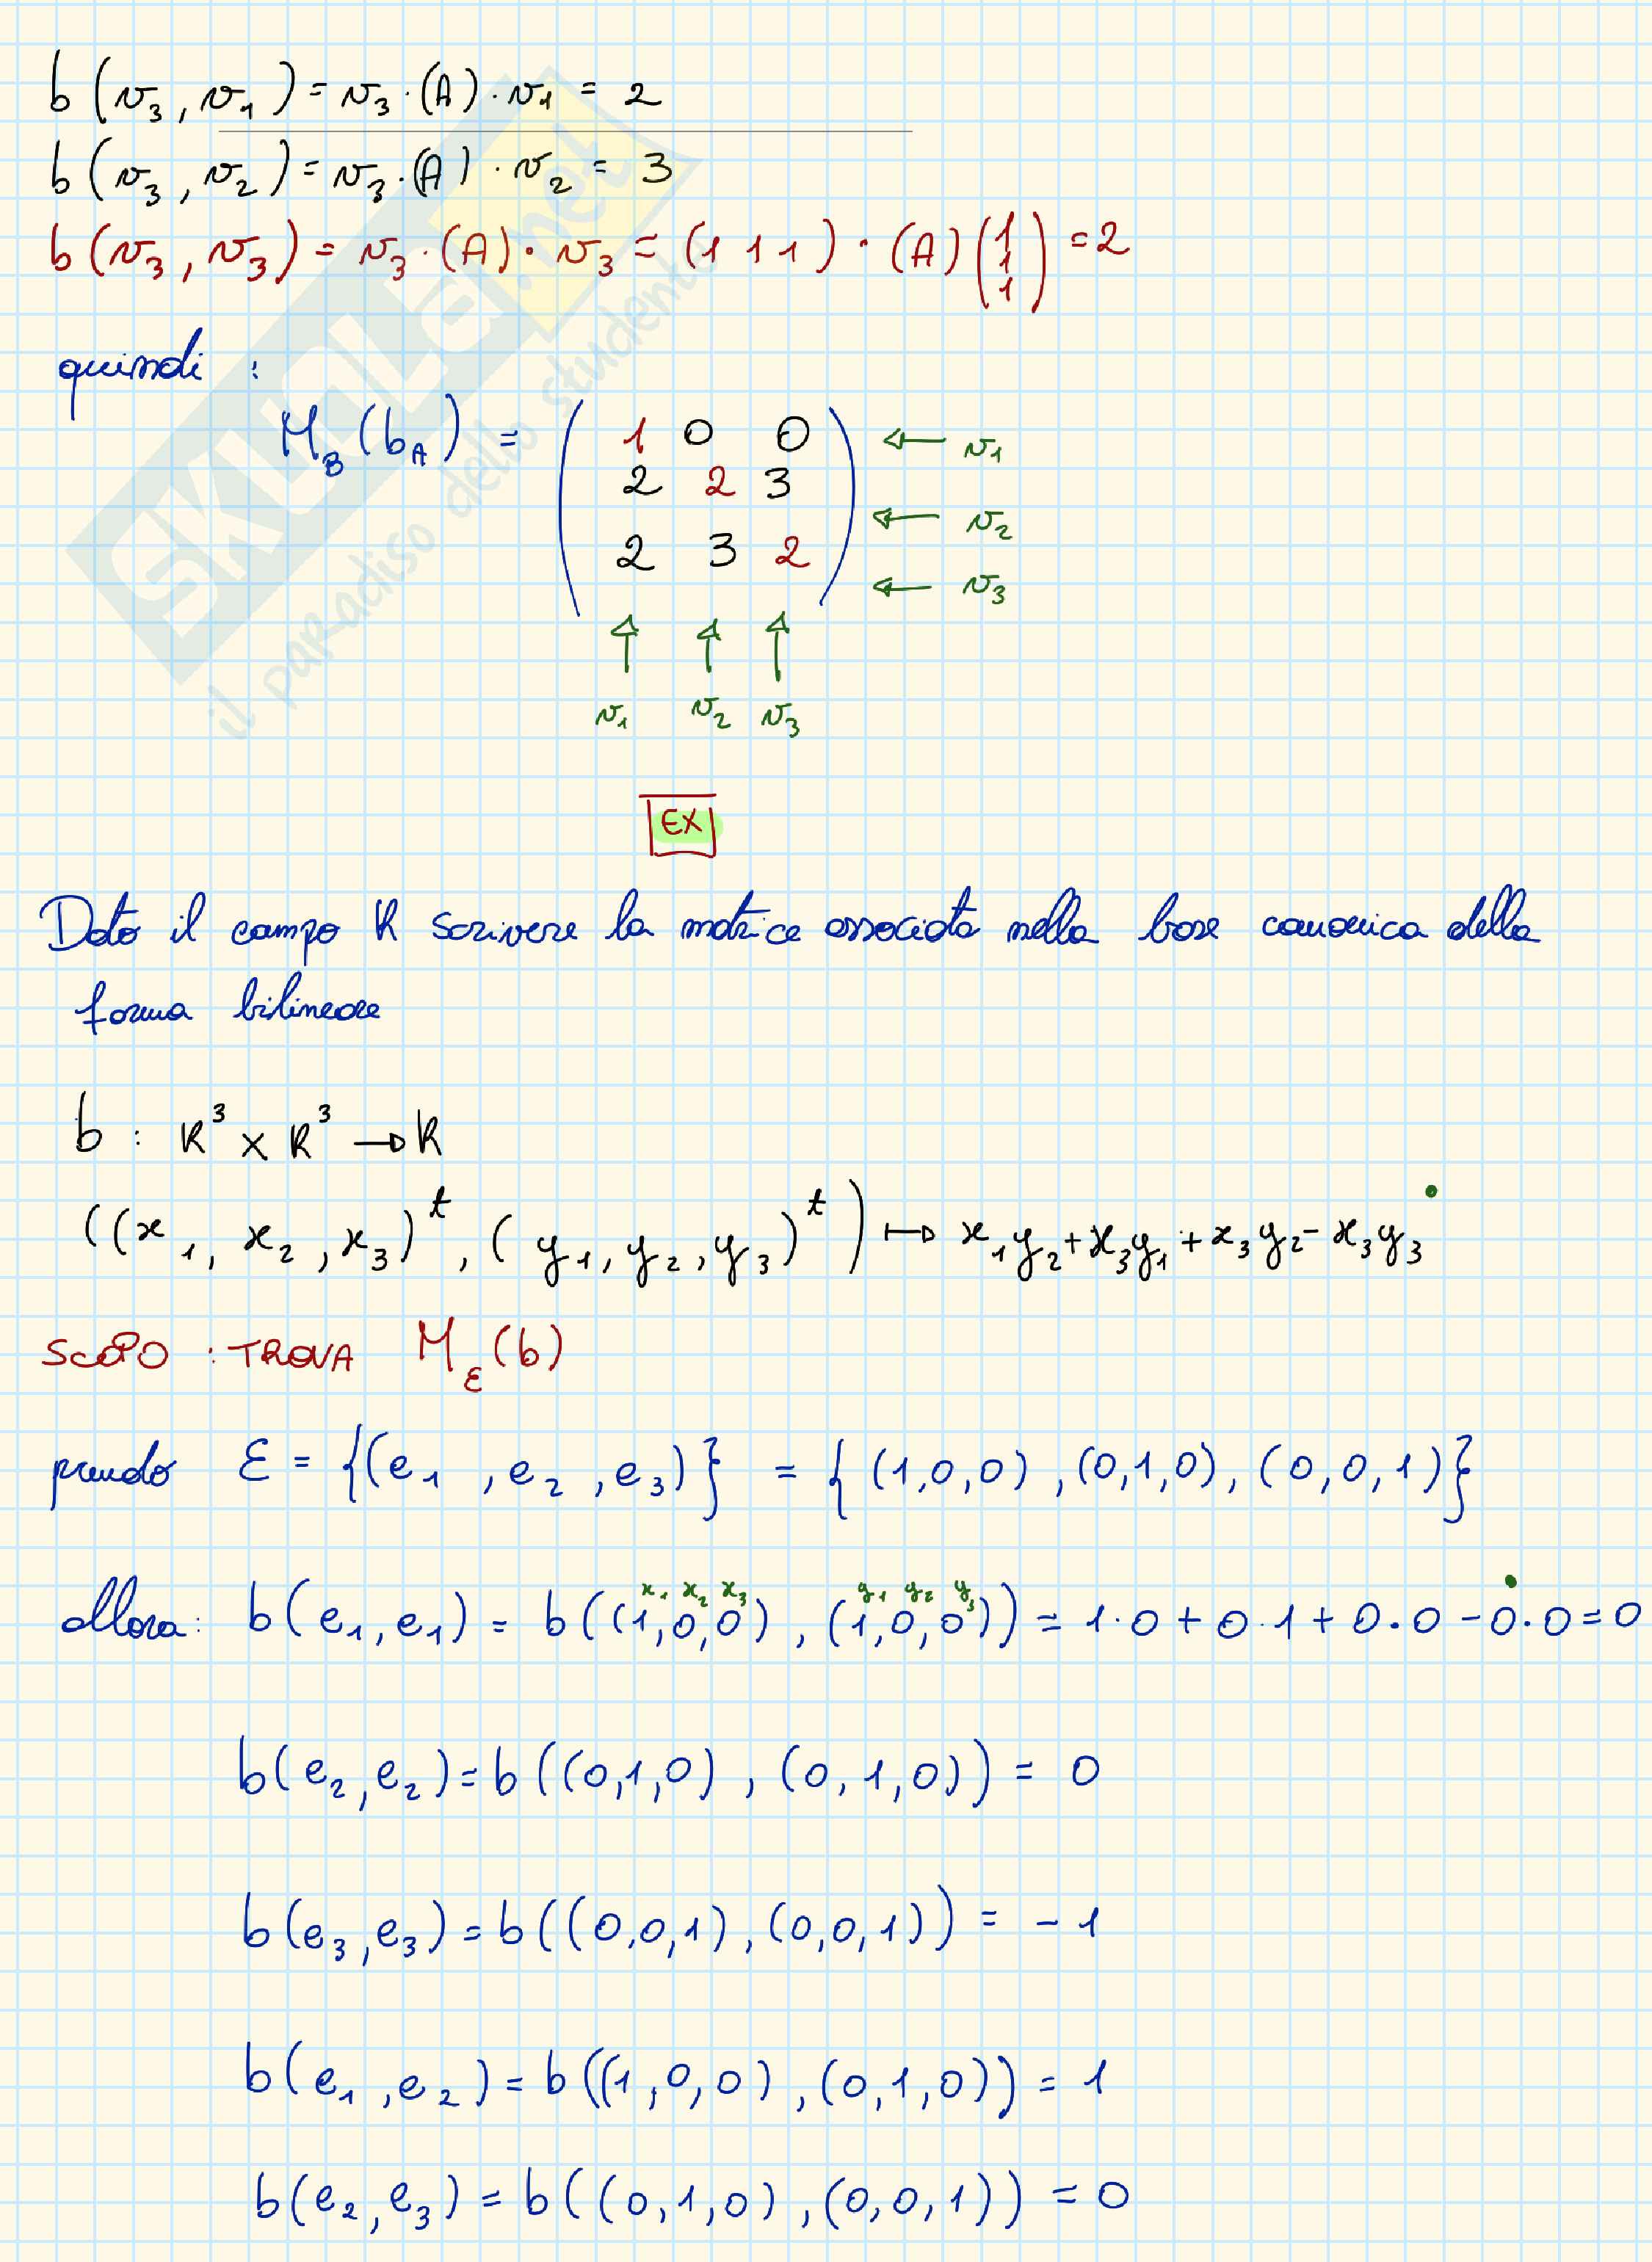 b(v₃, v₁) = v₃·(A)·v₁ = 2
b(v₃, v₂) = v₃·(A)·v₂ = 3
b(v₃, v₃) = v₃·(A)·v₃ = (1 1 1)·(A)(1 1 1) = 2
quindi :
M_B(b_A) = ( 1 0 0 ← v₁
2 2 3 ← v₂
2 3 2 ) ← v₃
↑ ↑ ↑
v₁ v₂ v₃
EX
Dato il campo K scrivere la matrice associata nella base canonica della
forma bilineare
b : K³ × K³ → K
((x₁, x₂, x₃)ᵗ, (y₁, y₂, y₃)ᵗ) ↦ x₁y₂ + x₃y₁ + x₃y₂ - x₃y₃
SCOPO : TROVA M_ε(b)
prendo ε = {(e₁, e₂, e₃)} = {(1,0,0), (0,1,0), (0,0,1)}
x₁ x₂ x₃ y₁ y₂ y₃
allora: b(e₁,e₁) = b((1,0,0), (1,0,0)) = 1·0 + 0·1 + 0·0 - 0·0 = 0
b(e₂,e₂) = b((0,1,0), (0,1,0)) = 0
b(e₃,e₃) = b((0,0,1), (0,0,1)) = -1
b(e₁,e₂) = b((1,0,0), (0,1,0)) = 1
b(e₂,e₃) = b((0,1,0), (0,0,1)) = 0
SKUOLa.net
il paradiso dello studente